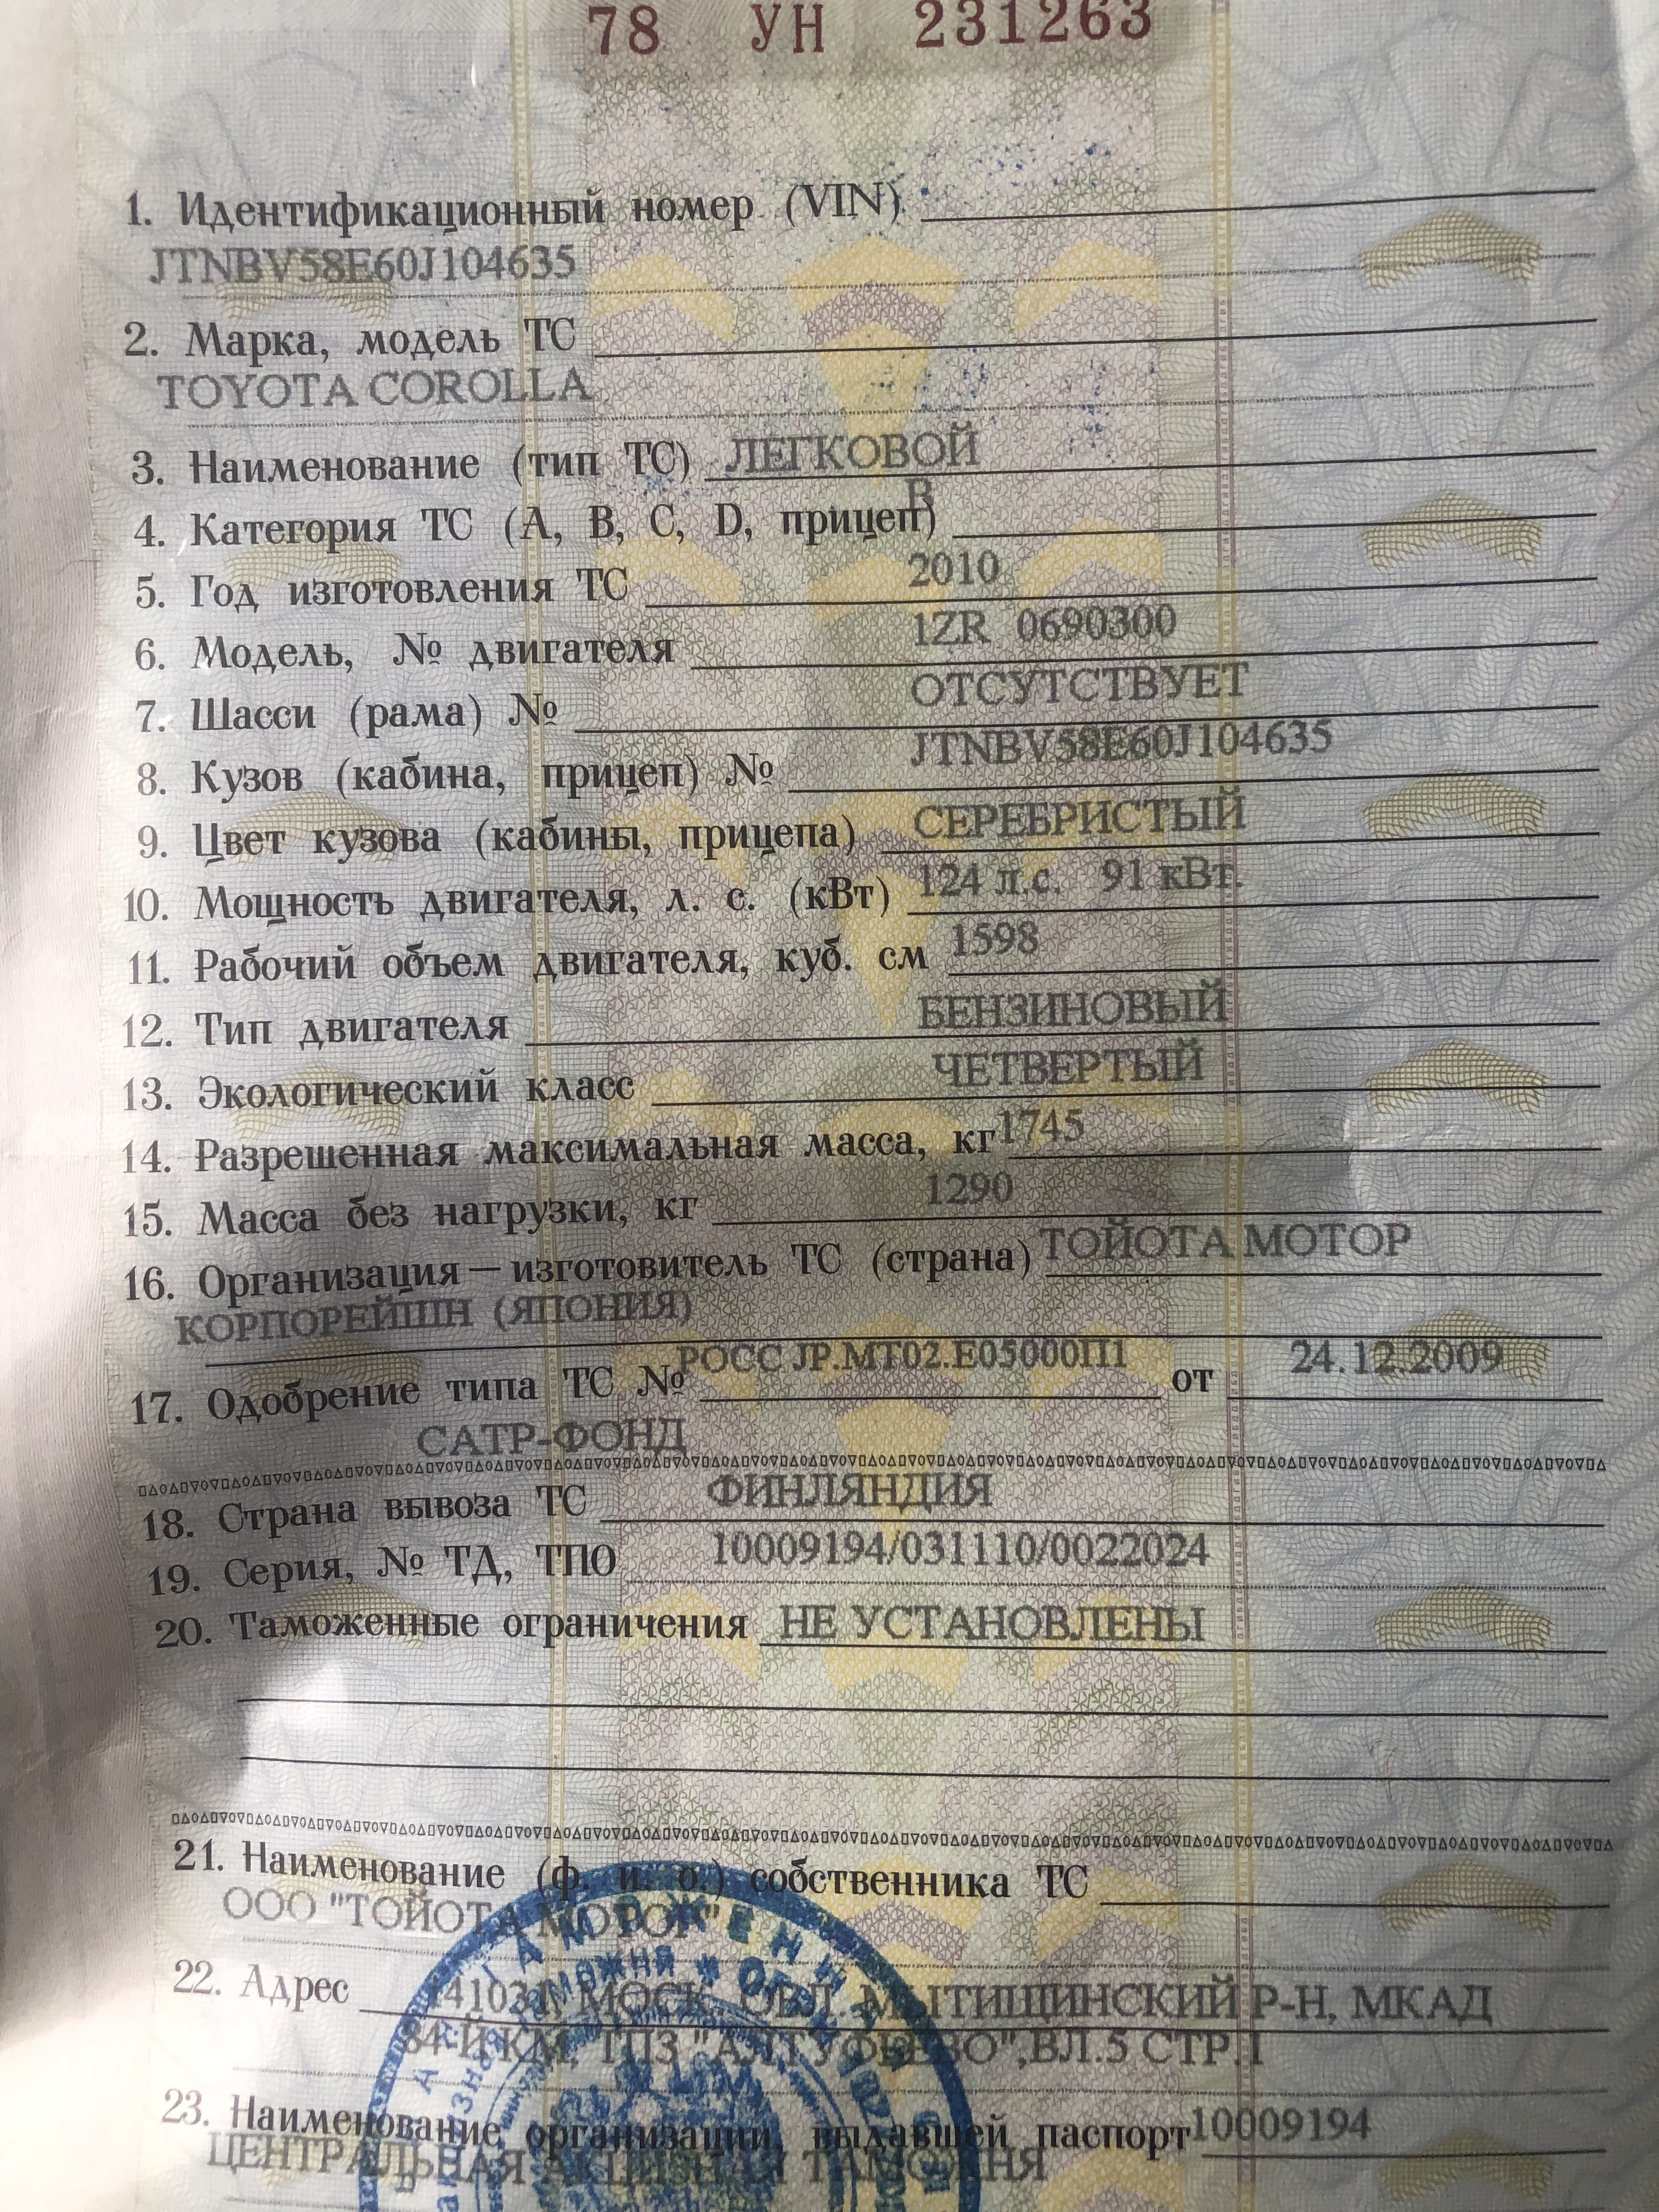 78 УН 231263
1. Идентификационный номер (VIN)
JTNBV58E60J104635
2. Марка, модель ТС
TOYOTA COROLLA
3. Наименование (тип ТС) ЛЕГКОВОЙ
4. Категория ТС (A, B, C, D, прицеп) B
5. Год изготовления ТС 2010
6. Модель, № двигателя 1ZR 0690300
7. Шасси (рама) № ОТСУТСТВУЕТ
8. Кузов (кабина, прицеп) № JTNBV58E60J104635
9. Цвет кузова (кабины, прицепа) СЕРЕБРИСТЫЙ
10. Мощность двигателя, л. с. (кВт) 124 л.с. 91 кВт.
11. Рабочий объем двигателя, куб. см 1598
12. Тип двигателя БЕНЗИНОВЫЙ
13. Экологический класс ЧЕТВЕРТЫЙ
14. Разрешенная максимальная масса, кг 1745
15. Масса без нагрузки, кг 1290
16. Организация — изготовитель ТС (страна) ТОЙОТА МОТОР
КОРПОРЕЙШН (ЯПОНИЯ)
17. Одобрение типа ТС № РОСС JP.MT02.E05000П1 от 24.12.2009
САТР-ФОНД
18. Страна вывоза ТС ФИНЛЯНДИЯ
19. Серия, № ТД, ТПО 10009194/031110/0022024
20. Таможенные ограничения НЕ УСТАНОВЛЕНЫ
21. Наименование (ф. и. о.) собственника ТС
ООО "ТОЙОТА МОТОР"
22. Адрес 141031, МОСК. ОБЛ. МЫТИЩИНСКИЙ Р-Н, МКАД
84-Й КМ, ТПЗ "АЛТУФЬЕВО",ВЛ.5 СТР.1
23. Наименование организации, выдавшей паспорт 10009194
ЦЕНТРАЛЬНАЯ АКЦИЗНАЯ ТАМОЖНЯ